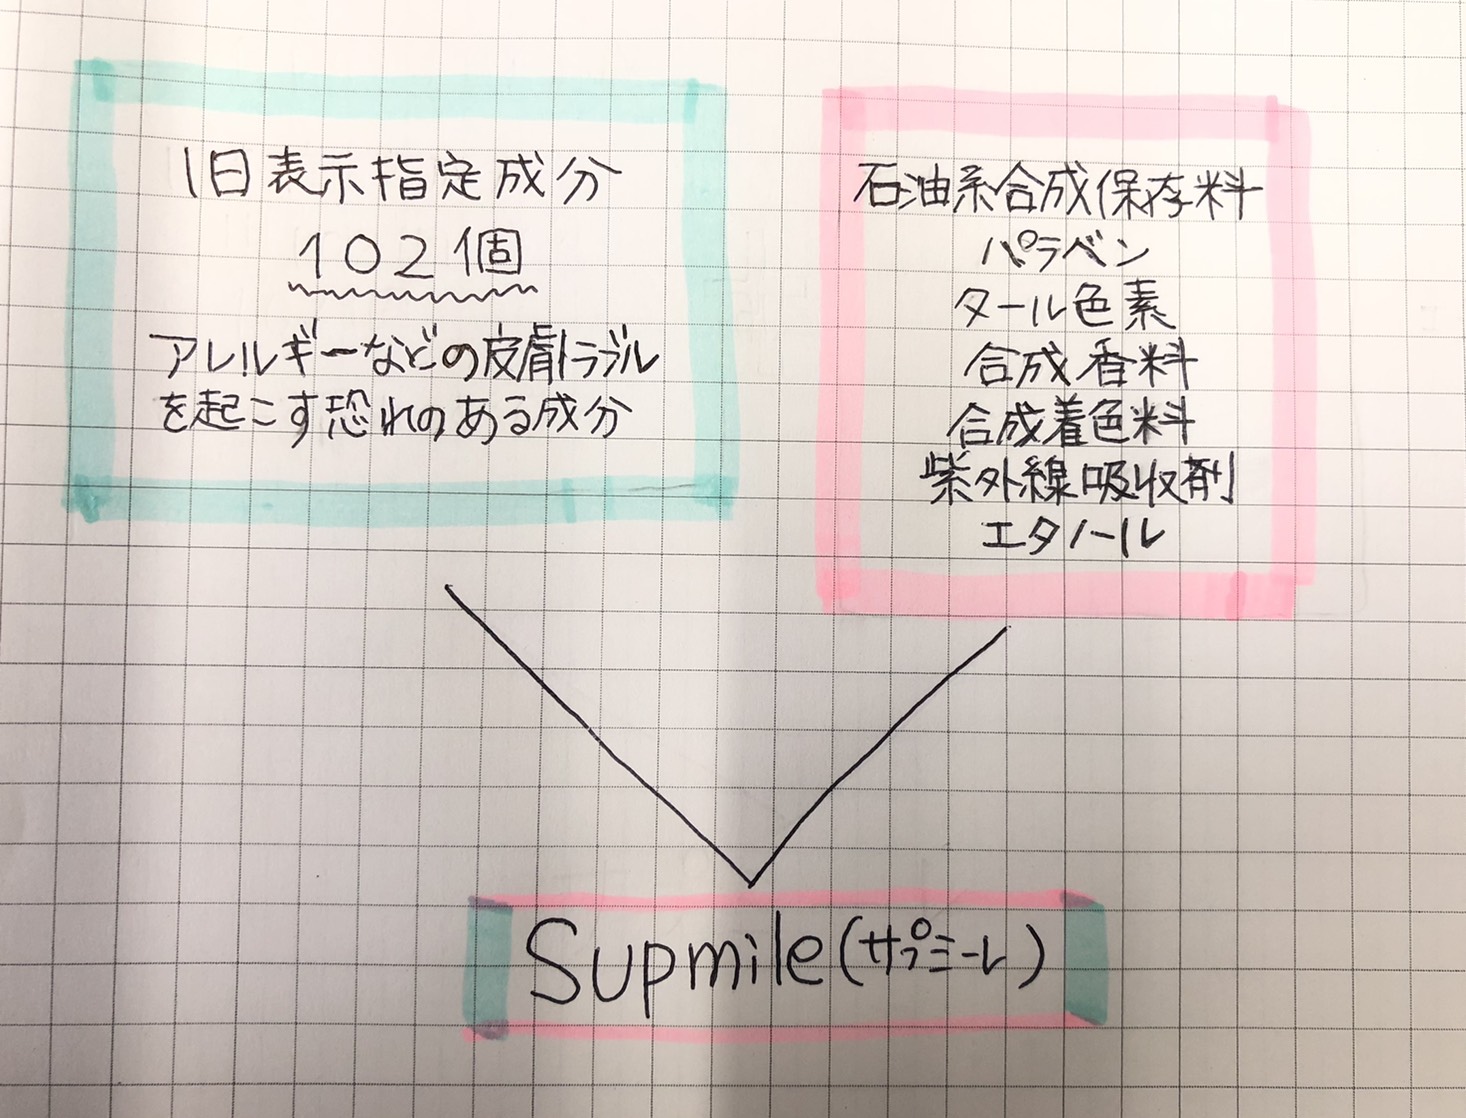 旧表示指定成分
102個
アレルギーなどの皮膚トラブル
を起こす恐れのある成分
石油系合成保存料
パラベン
タール色素
合成香料
合成着色料
紫外線吸収剤
エタノール
Supmile(サプミーレ)